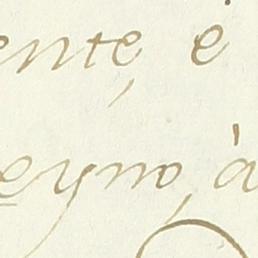 ente, e
eyno, à